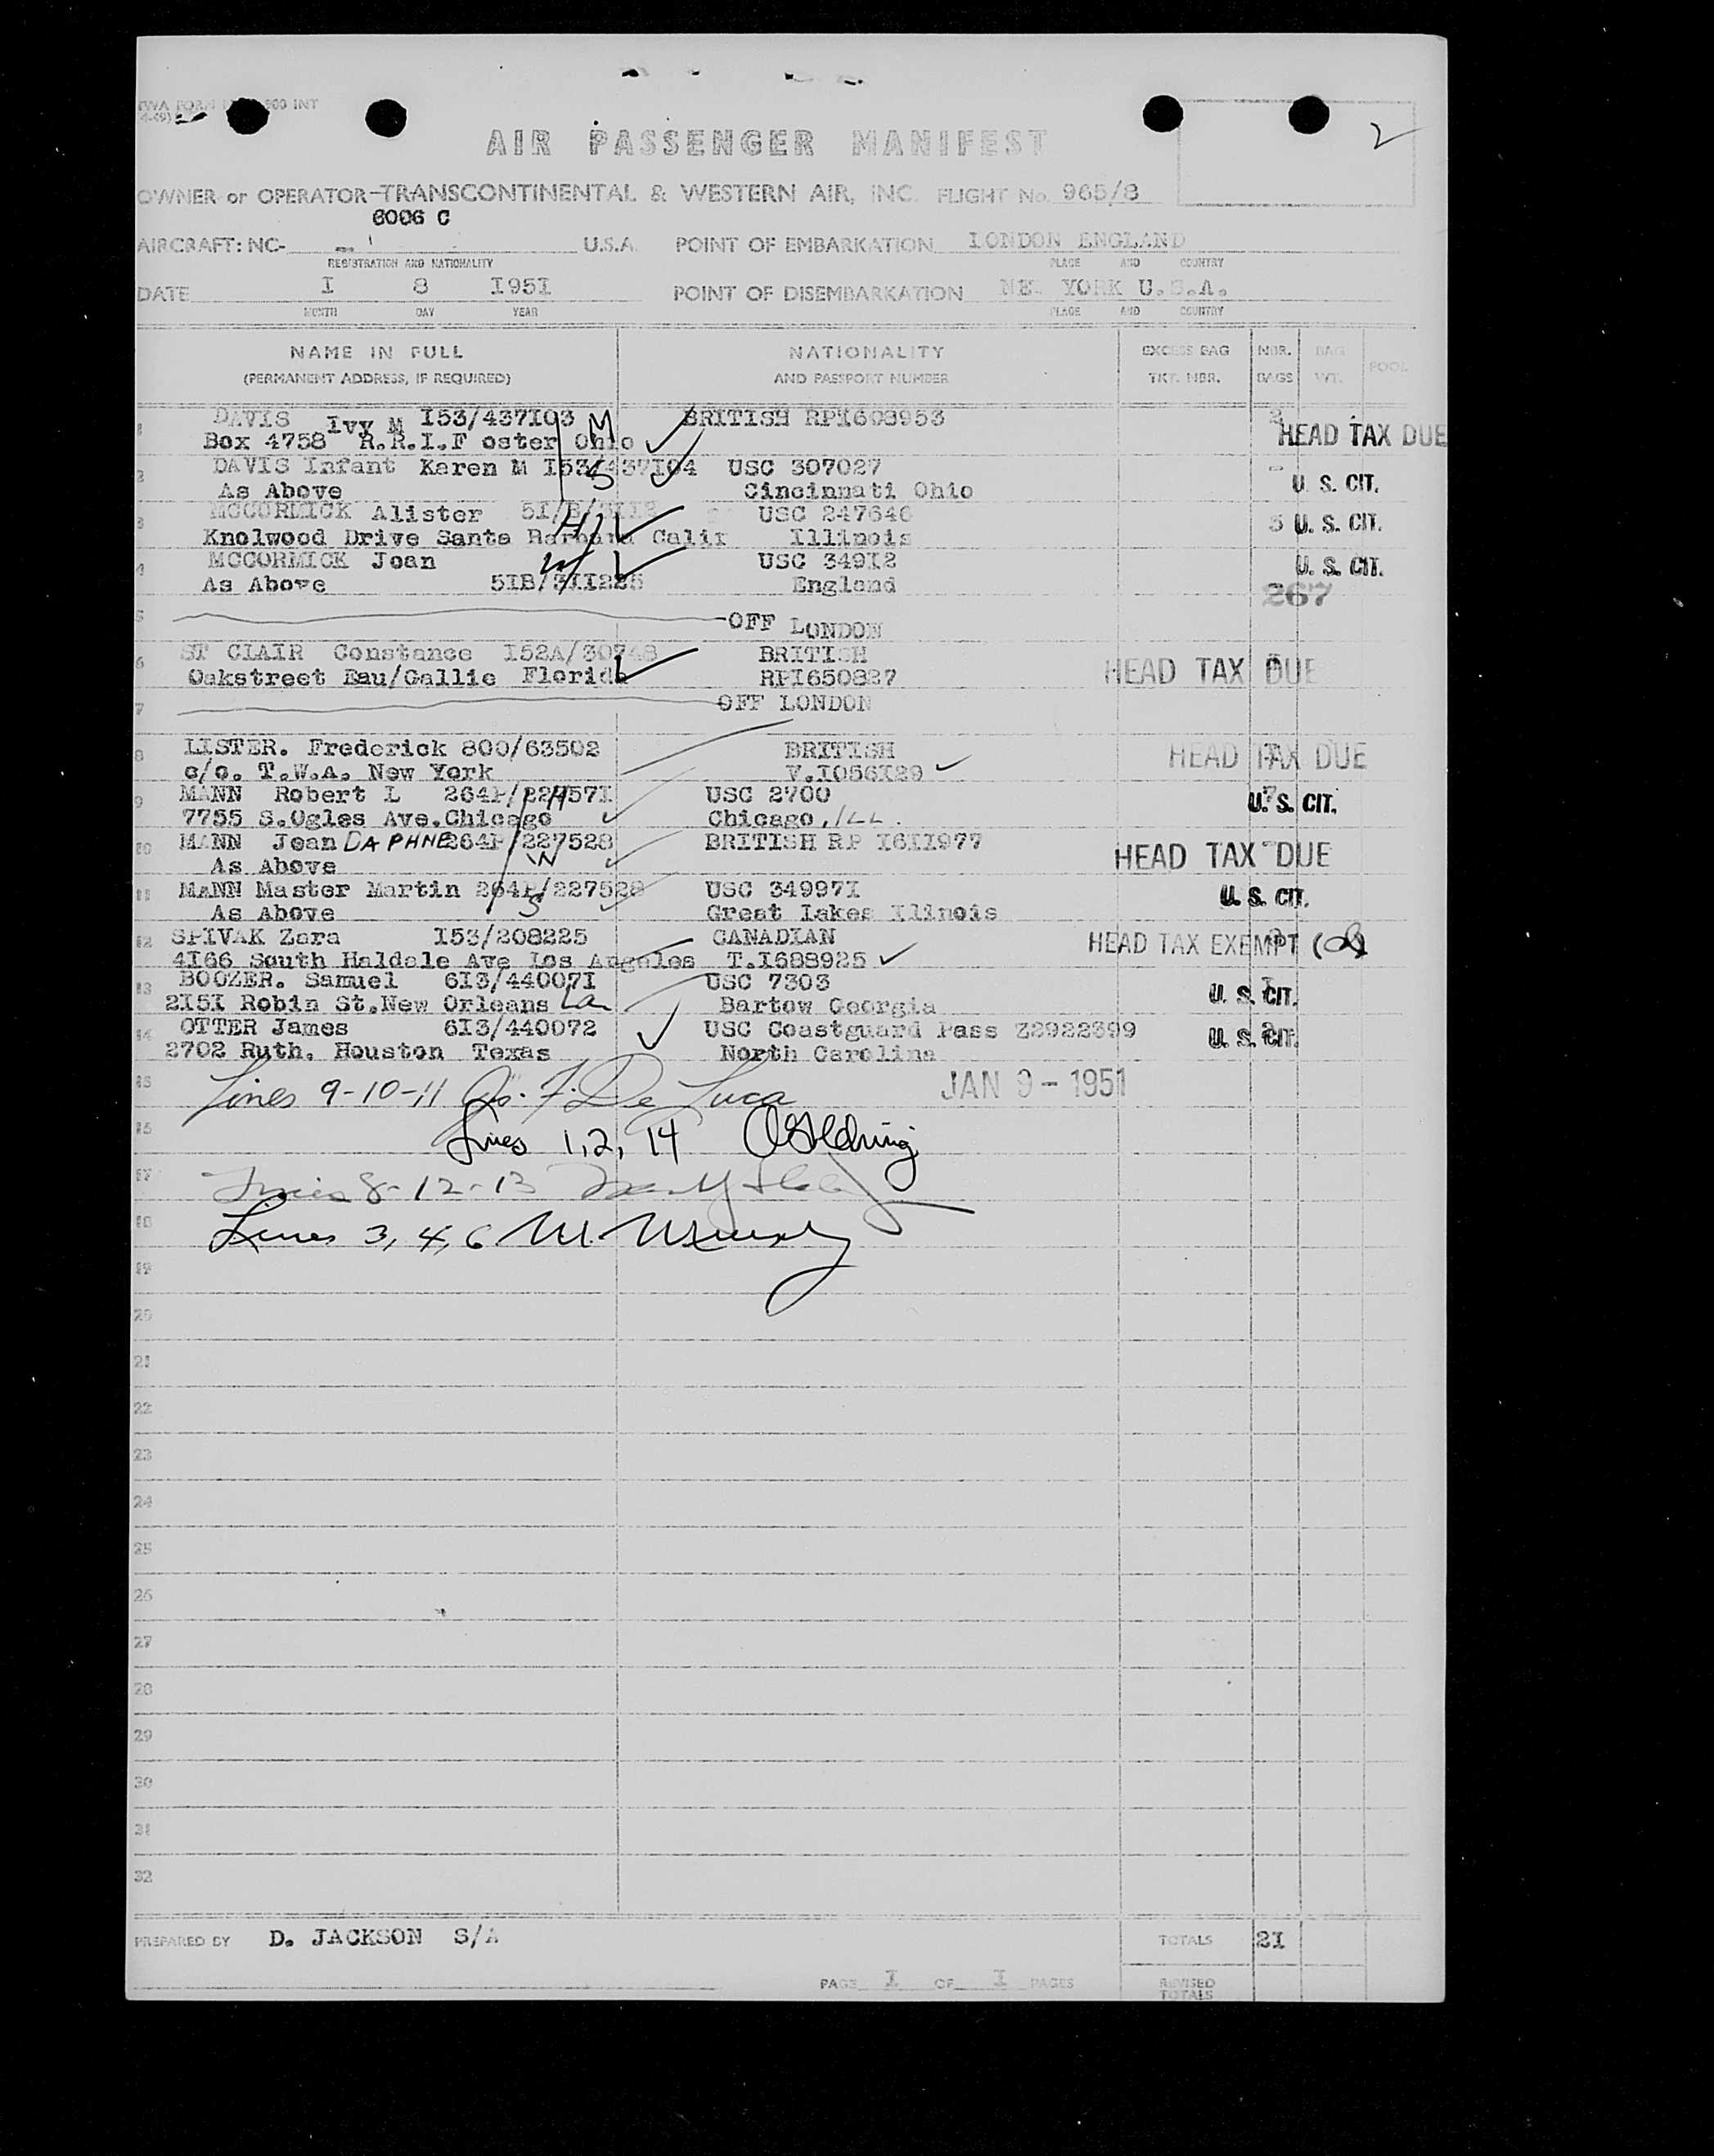 TWA FORM 900 INT
2
AIR PASSENGER MANIFEST
OWNER or OPERATOR-TRANSCONTINENTAL & WESTERN AIR, INC. FLIGHT No. 965/8
6006 C
AIRCRAFT: NC- U.S.A. POINT OF EMBARKATION LONDON ENGLAND
REGISTRATION AND NATIONALITY PLACE AND COUNTRY
DATE I 8 I95I POINT OF DISEMBARKATION NE YORK U.S.A.
MONTH DAY YEAR PLACE AND COUNTRY
NAME IN FULL NATIONALITY EXCESS BAG NBR. BAG POOL
(PERMANENT ADDRESS, IF REQUIRED) AND PASSPORT NUMBER TKT. NBR. BAGS WT.
1 DAVIS Ivy M I53/437I03 M BRITISH RPI608953 HEAD TAX DUE
Box 4758 R.R.I.F oster Ohio
2 DAVIS Infant Karen M I53/437I04 S USC 307027 U. S. CIT.
As Above Cincinnati Ohio
3 MCCORMICK Alister H USC 247640 3 U. S. CIT.
Knolwood Drive Santa Barbara Calif Illinois
4 MCCORMICK Joan W USC 349I2 U. S. CIT.
As Above 5IB/3II225 England 267
5 OFF LONDON
6 ST CLAIR Constance I52A/30748 BRITISH HEAD TAX DUE
Oakstreet Eau/Gallie Florida RPI650827
7 OFF LONDON
8 LISTER. Frederick 800/63502 BRITISH HEAD TAX DUE
c/o. T.W.A. New York V.I056I29
9 MANN Robert L 264P/22757I H USC 2700 U. S. CIT.
7755 S.Ogles Ave.Chicago Chicago, ILL.
10 MANN Jean DAPHNE 264P/227528 BRITISH RP I6II977 HEAD TAX DUE
As Above W
11 MANN Master Martin 264P/227528 USC 34997I U. S. CIT.
As Above S Great Lakes Illinois
12 SPIVAK Zara I53/208225 CANADIAN HEAD TAX EXEMPT
4I66 South Haldale Ave Los Angeles T.I688925
13 BOOZER. Samuel 6I3/44007I USC 7303 U. S. CIT.
2I5I Robin St.New Orleans La Bartow Georgia
14 OTTER James 6I3/440072 USC Coastguard Pass Z2922399 U. S. CIT.
2702 Ruth. Houston Texas North Carolina
15 Lines 9-10-11 Jos. F. De Luca JAN 9 - 1951
16 Lines 1, 2, 14
17 Lines 8-12-13
18 Lines 3, 4, 6
19
20
21
22
23
24
25
26
27
28
29
30
31
32
PREPARED BY D. JACKSON S/A TOTALS 2I
PAGE I OF I PAGES REVISED
TOTALS